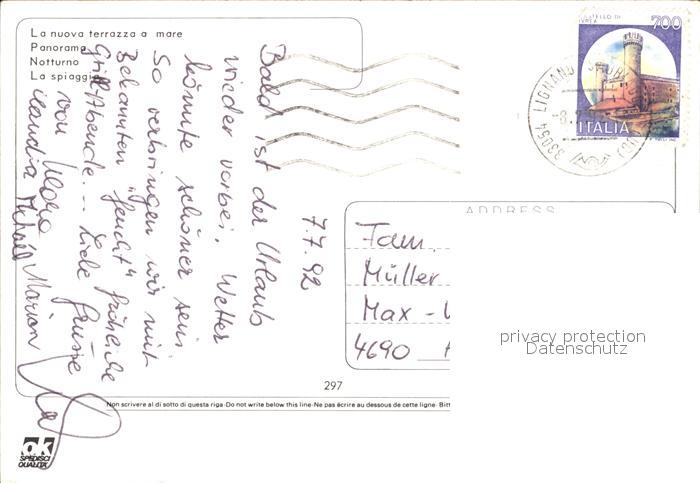 La nuova terrazza a mare
Panorama
Notturno
La spiaggia
CASTELLO DI
IVREA
700
ITALIA
33054 LIGNANO SABBIADORO
7.7.92
Bald ist der Urlaub
wieder vorbei, Wetter
könnte schöner sein
So verbringen wir mit
Bekannten "feucht" fröhliche
Grill Abende... Liebe Grüsse
von
Claudia Michael Marion
ADDRESS
Fam.
Müller
Max -
4690
privacy protection
Datenschutz
297
Non scrivere al di sotto di questa riga-Do not write below this line-Ne pas écrire au dessous de cette ligne- Bitt
ok
SPEDISCI
QUALITÀ